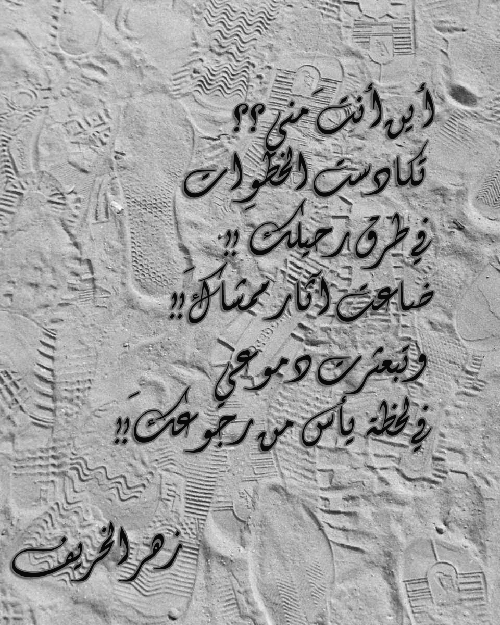 أين أنتَ مني ؟؟
تكادست الخطوات
في طرق رحيلك !!
ضاعت آثار ممشاكَ !!
وتبعثرت دموعي
في لحظة يأس من رجوعكَ !!
زهر الخريف